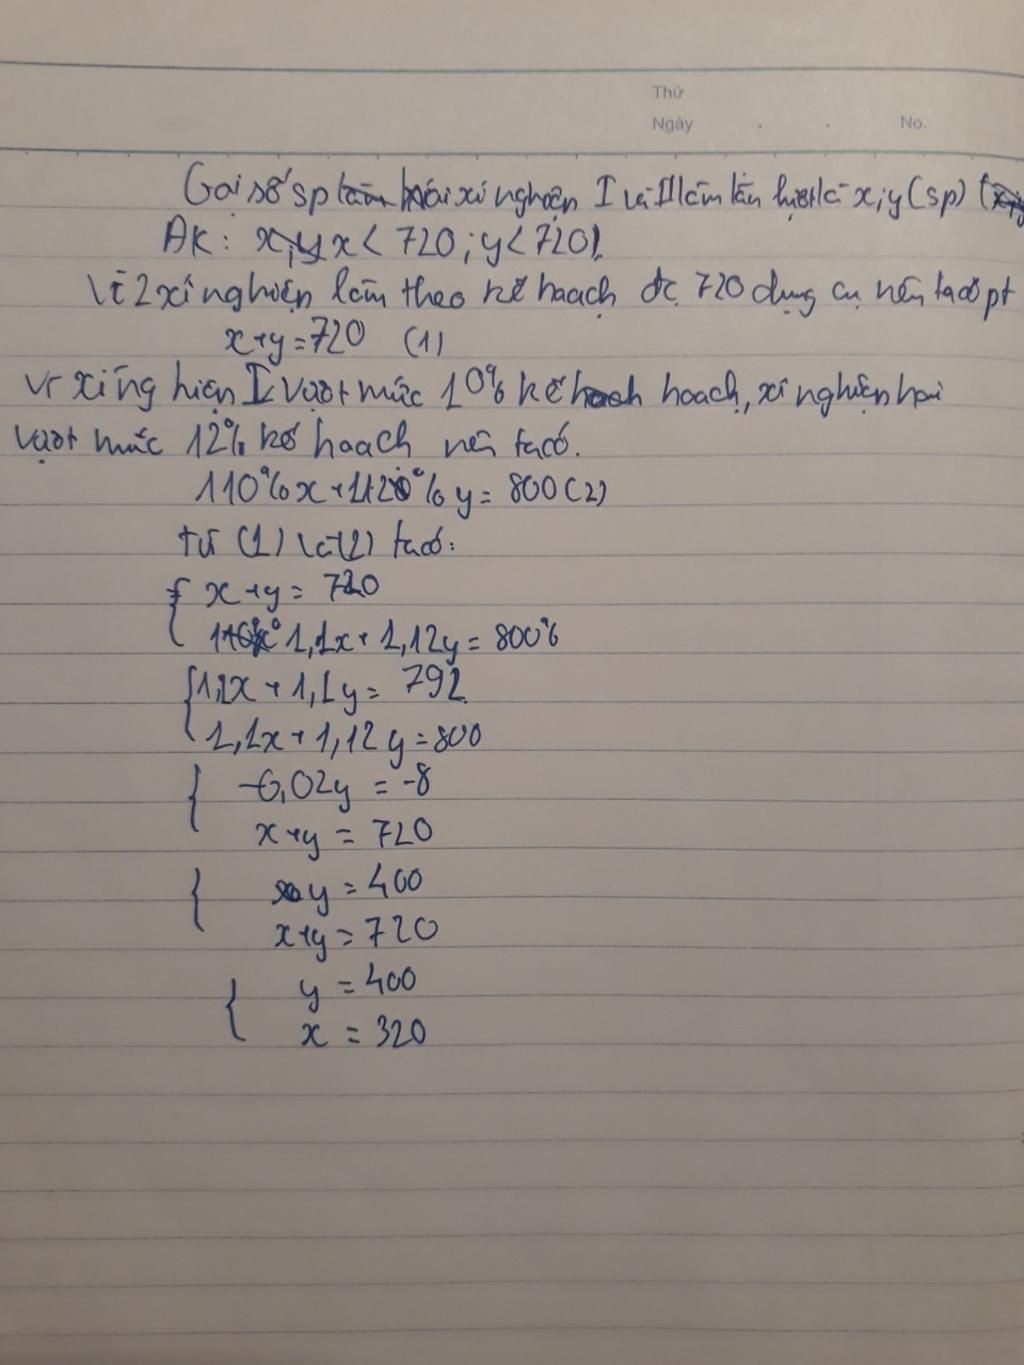 Thứ
Ngày . . No.
Gọi số sp hai xí nghiệp I và II làm lần lượt là x;y (sp)
ĐK: x < 720; y < 720)
Vì 2 xí nghiệp làm theo kế hoạch đc 720 dụng cụ nên ta có pt
x+y=720 (1)
Vì xí nghiện I vượt mức 10% kế hoạch, xí nghiện hai
vượt mức 12% kế hoạch nên ta có.
110%x + 112%y = 800 (2)
từ (1) và (2) ta có:
{ x+y = 720
1,1x + 1,12y = 800
{ 1,1x + 1,1y = 792
1,1x + 1,12y = 800
{ -0,02y = -8
x+y = 720
{ y = 400
x+y = 720
{ y = 400
x = 320